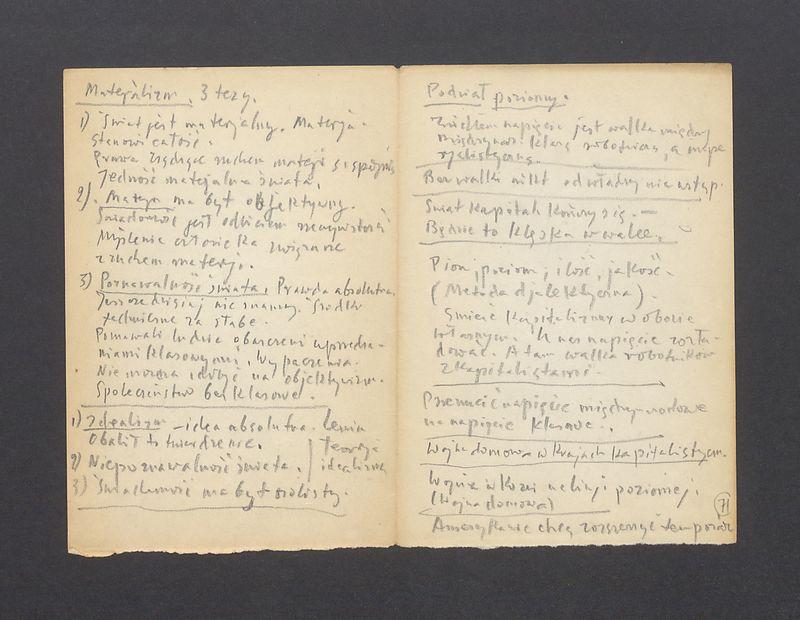 Materializm, 3 tezy.
1) Świat jest materjalny. Materja -
stanowi całość.
Prawa rządzące ruchem materji są spójne
Jedność materjalna świata.
2). Materja ma byt objektywny.
Świadomość jest odbiciem rzeczywistości
Myślenie człowieka związane
z ruchem materji.
3) Poznawalność świata. Prawda absolutna
Jeszcze dzisiaj nie znamy. Środki
techniczne za słabe.
Poznawali ludzie obarczeni uprzedze-
niami klasowymi, wypaczenia.
Nie można zdobyć na objektywizm.
Społeczeństwo bezklasowe.
1) Idealizm - idea absolutna. Lenin
obalił to twierdzenie. teorję
2) Niepoznawalność świata. idealizmu
3) Świadomość ma byt osobisty.
Podział poziomy.
napięcie jest walka między
międzynar. klasą robotniczą, a
Bez walki nikt od władzy nie ustąp.
Świat kapitału kończy się. -
Będzie to klęska w walce.
Pion, poziom, ilość, jakość.
(Metoda djalektyczna).
kapitalizmy w obozie
własnym. U nas napięcie rozła-
dować. A tam walka robotników
z kapitalistami.
Przerzucić napięcie międzynarodowe
na napięcie klasowe.
Wojna domowa w krajach kapitalistycz.
Wojna w Korei na linji poziomej.
(Wojna domowa)
71
Amerykanie chcą rozszerzyć